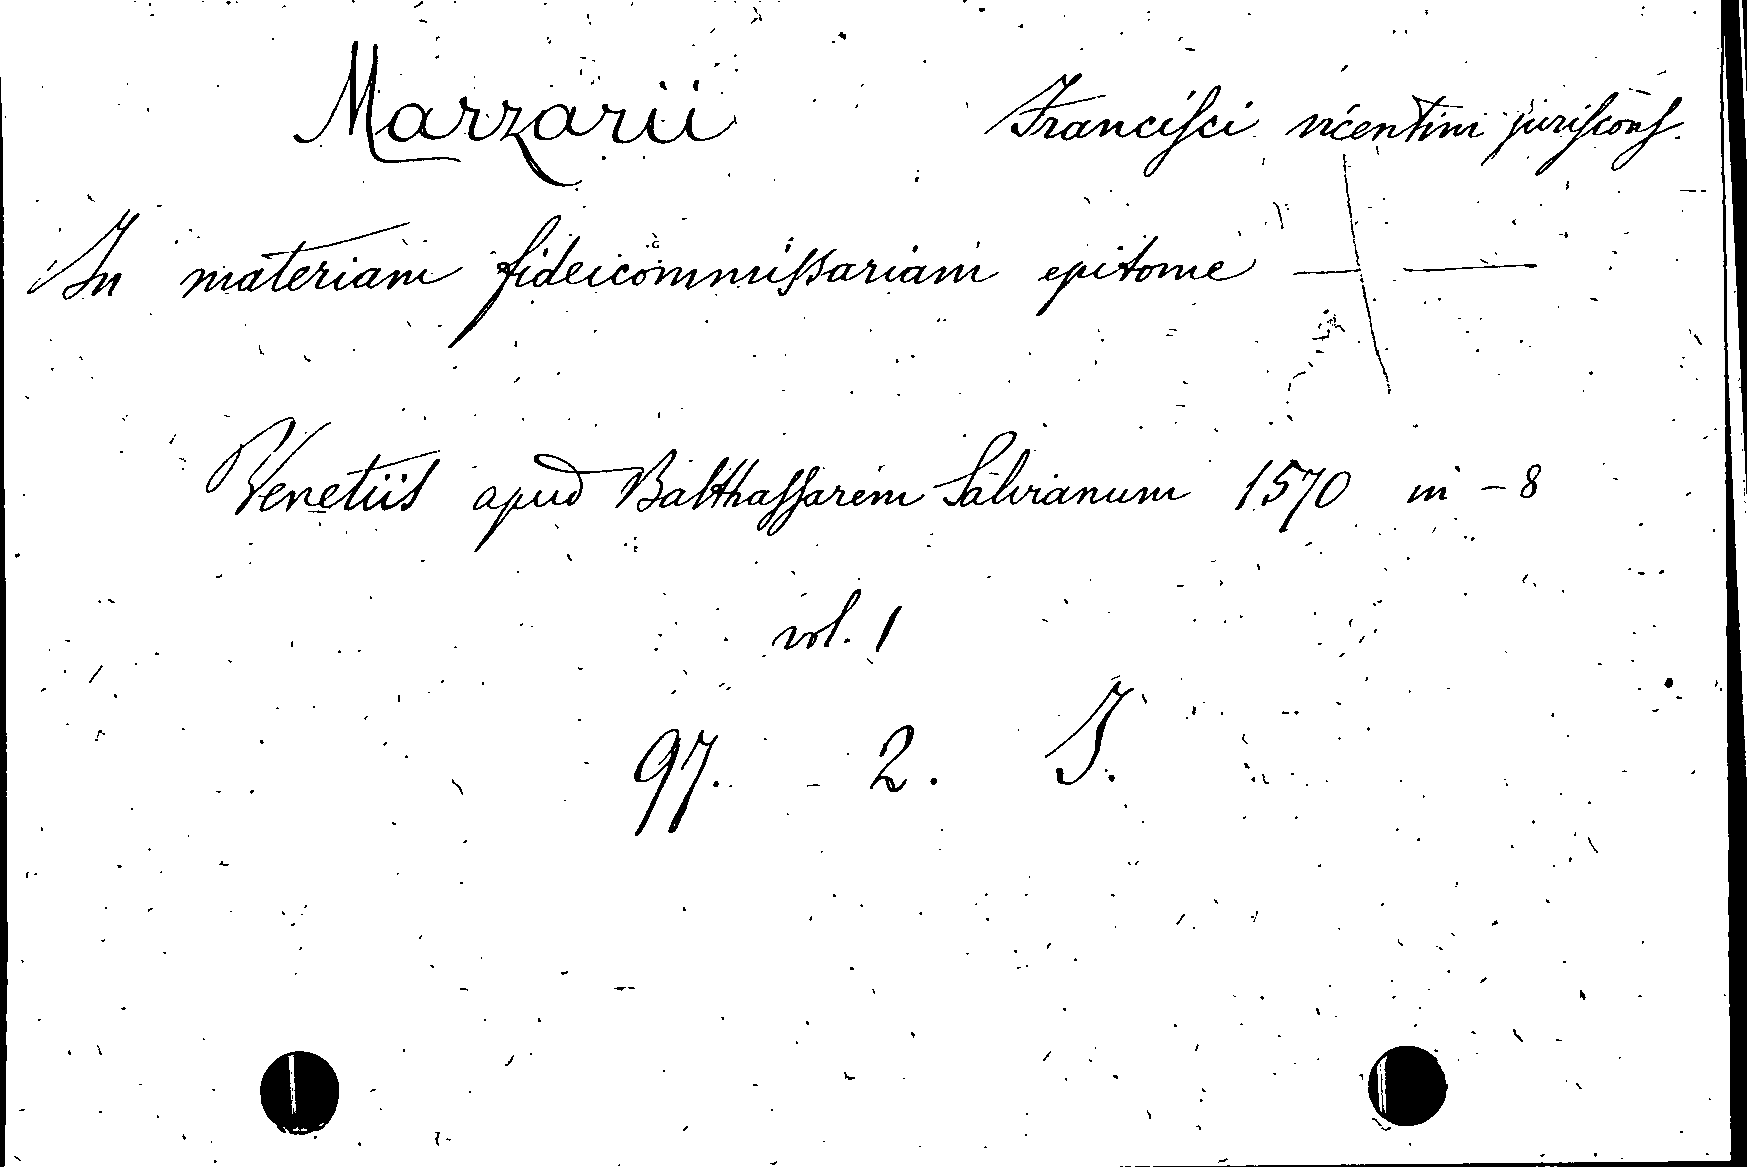 Marzarii Francisci vicentini juriscons.
In materiam fideicommissariam epitome — —
Venetiis apud Balthassarem Salvianum 1570 in-8
vol. 1
97. 2. I.